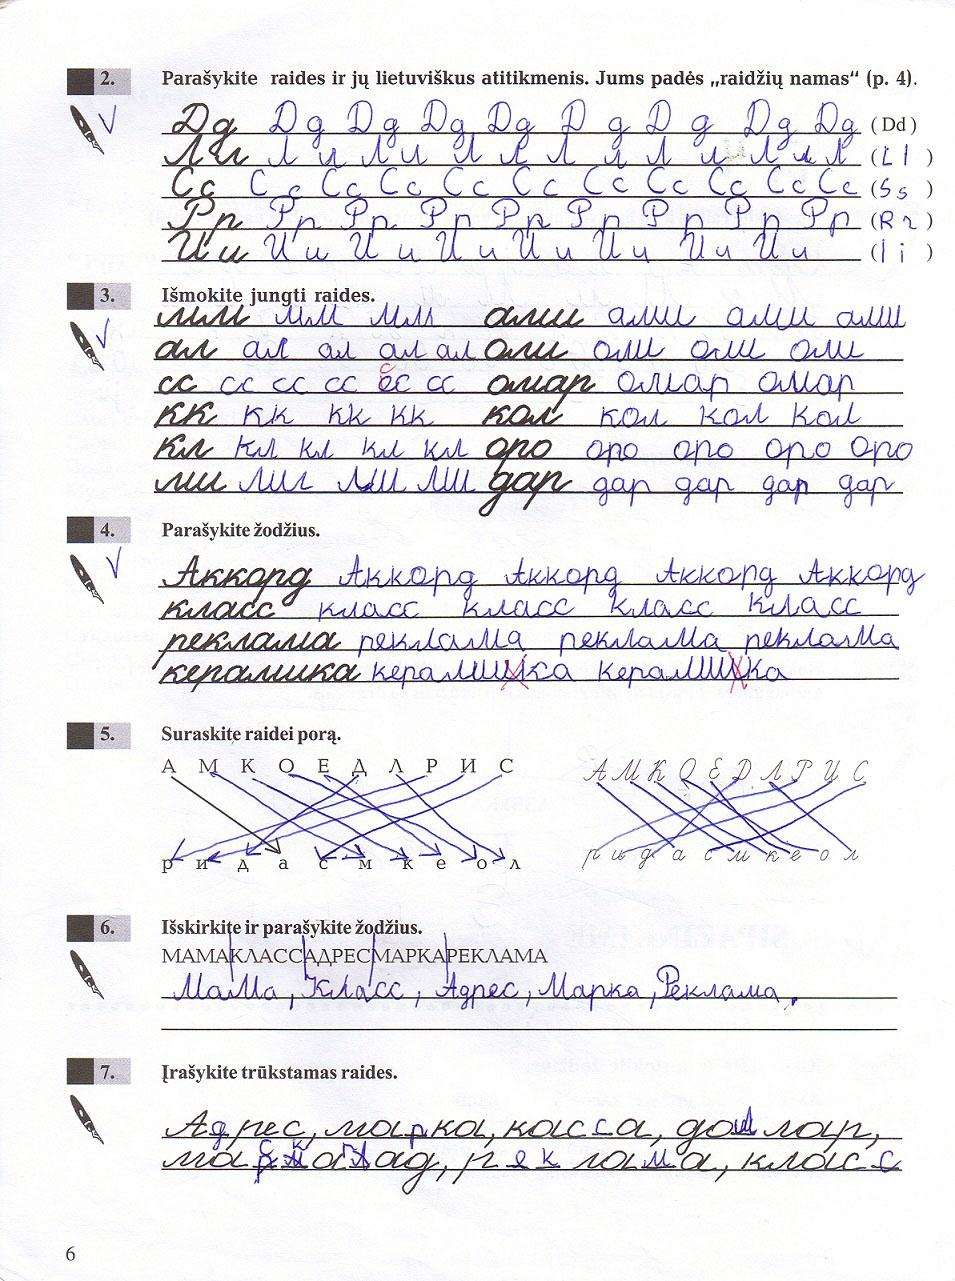 2. Parašykite raides ir jų lietuviškus atitikmenis. Jums padės „raidžių namas“ (p. 4).
Дд Д д Д д Д д Д д Д д Д д Д д Д д (Dd)
Лл Л л Л л Л л Л л Л л Л л Л л (L l)
Сс С с Сс Сс Сс Сс Сс Сс Сс Сс Сс (S s)
Рр Рр Рр Рр Рр Рр Рр Рр Рр (R r)
Ии И и И и И и И и И и И и И и (I i)
3. Išmokite jungti raides.
мим мим мим али али али али
ал ал ал ал ал оли оли оли оли
сс сс сс сс сс сс омар омар омар
кк кк кк кк кол кол кол кол
кл кл кл кл кл оро оро оро оро
ми ми ми ми дар дар дар дар дар
4. Parašykite žodžius.
Аккорд Аккорд Аккорд Аккорд Аккорд
класс класс класс класс класс
реклама реклама реклама реклама
керамика керамика керамика
5. Suraskite raidei porą.
А М К О Е Д Л Р И С А М К О Е Д Л Р И С
р и д а с м к е о л р и д а с м к е о л
6. Išskirkite ir parašykite žodžius.
МАМАКЛАССАДРЕСМАРКАРЕКЛАМА
Мама, Класс, Адрес, Марка, Реклама.
7. Įrašykite trūkstamas raides.
Адрес, марка, касса, доллар,
реклама, класс
6